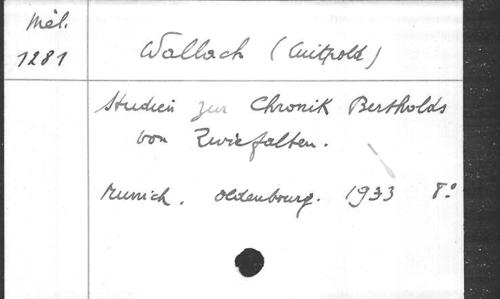 Mél.
1281
Wallach (Luitpold)
Studien zur Chronik Bertholds
von Zwiefalten.
Munich. Oldenbourg. 1933 8°